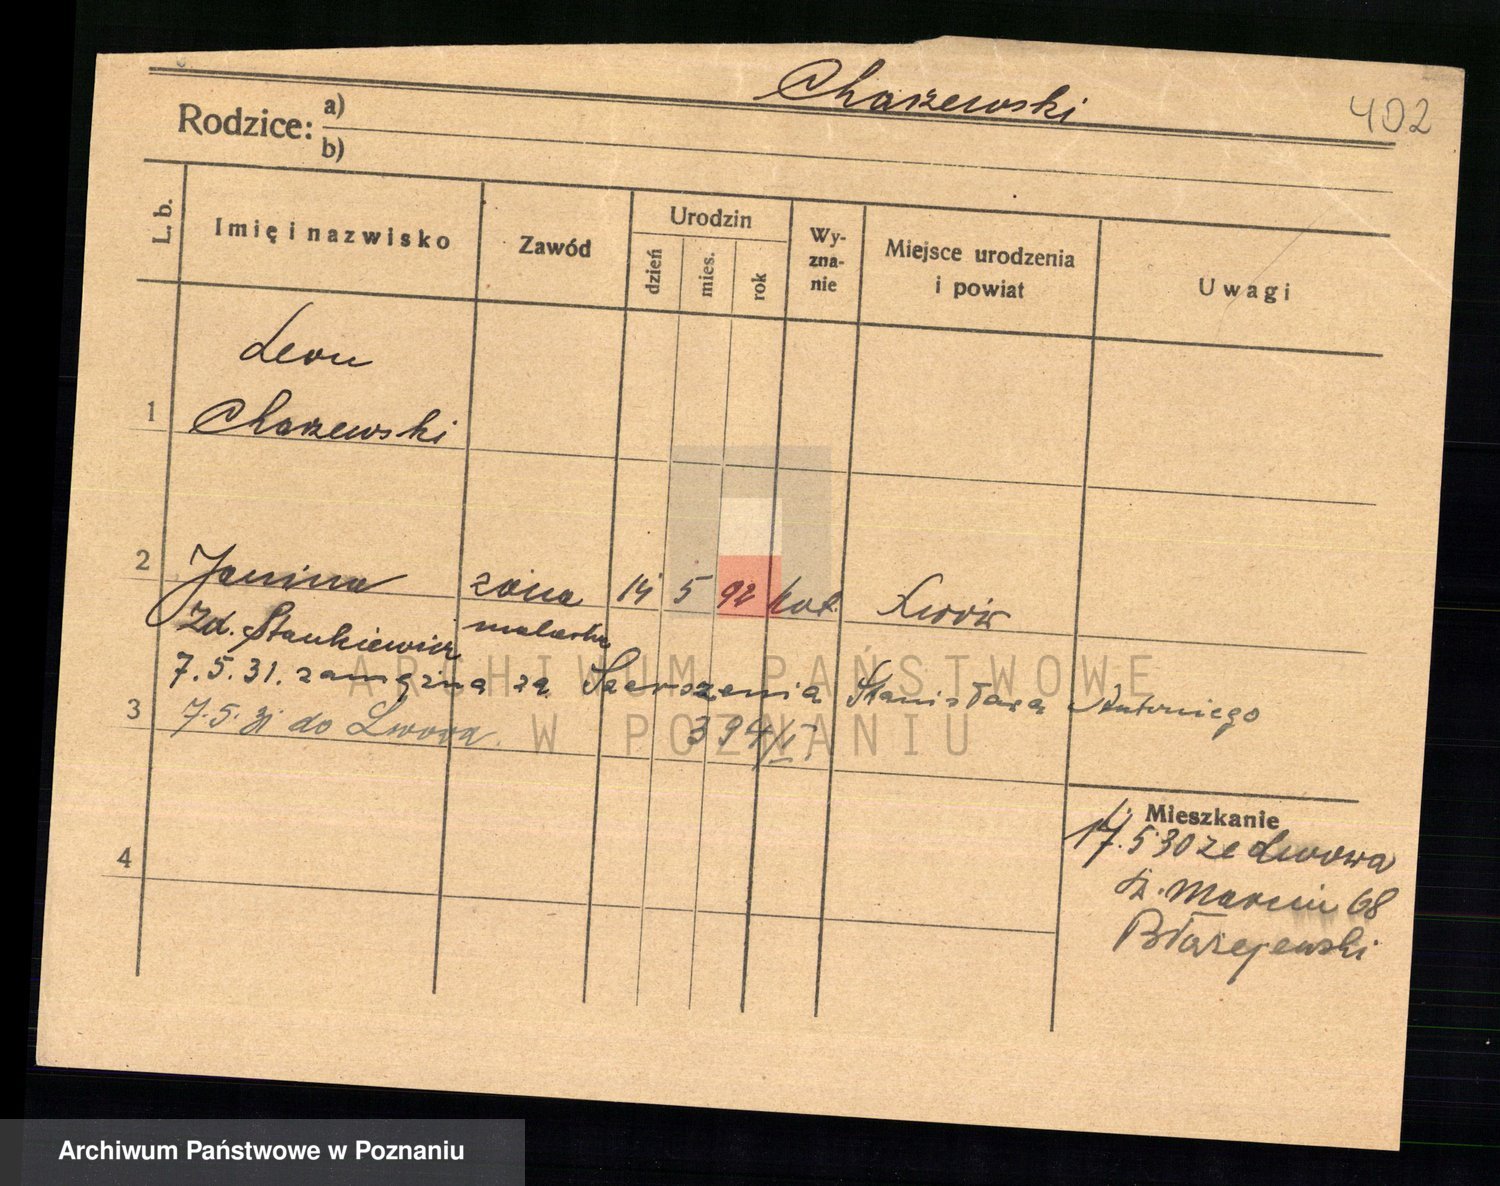 Chażewski
402
Rodzice: a)
b)
L. b.
Imię i nazwisko
Zawód
Urodzin
dzień
mies.
rok
Wy-
zna-
nie
Miejsce urodzenia
i powiat
Uwagi
Leon
1 Chażewski
2 Janina żona 14 5 92 kat. Lwów
Zd. Stankiewicz malarka
7.5.31. zamężna za Stanisława Antoniego
3 7.5.31 do Lwowa. 394/I
Mieszkanie
17.5 30 ze Lwowa
Św. Marcin 68
Błażejewski
4
ARCHIWUM PAŃSTWOWE
W POZNANIU
Archiwum Państwowe w Poznaniu